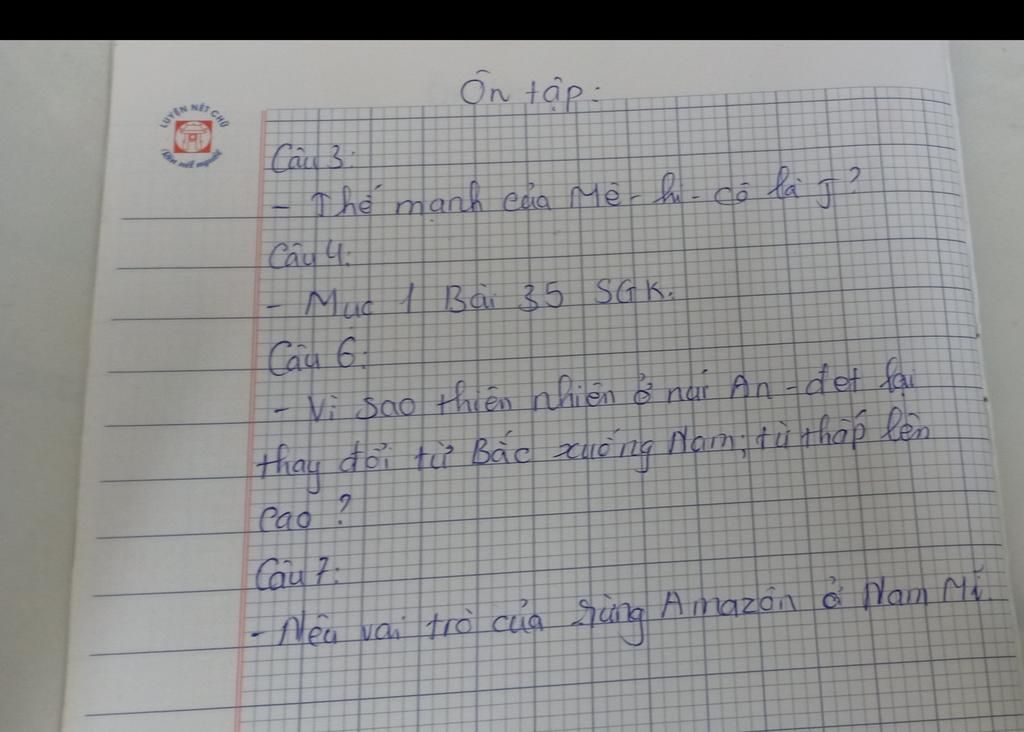 Ôn tập:
LUYỆN NÉT CHỮ
Rèn nết người
Câu 3:
- Thế mạnh của Mê-hi-cô là J?
Câu 4:
- Mục 1 Bài 35 SGK.
Câu 6:
- Vì sao thiên nhiên ở núi An-đet lại
thay đổi từ Bắc xuống Nam, từ thấp lên
cao?
Câu 7:
- Nêu vai trò của rừng Amazôn ở Nam Mĩ